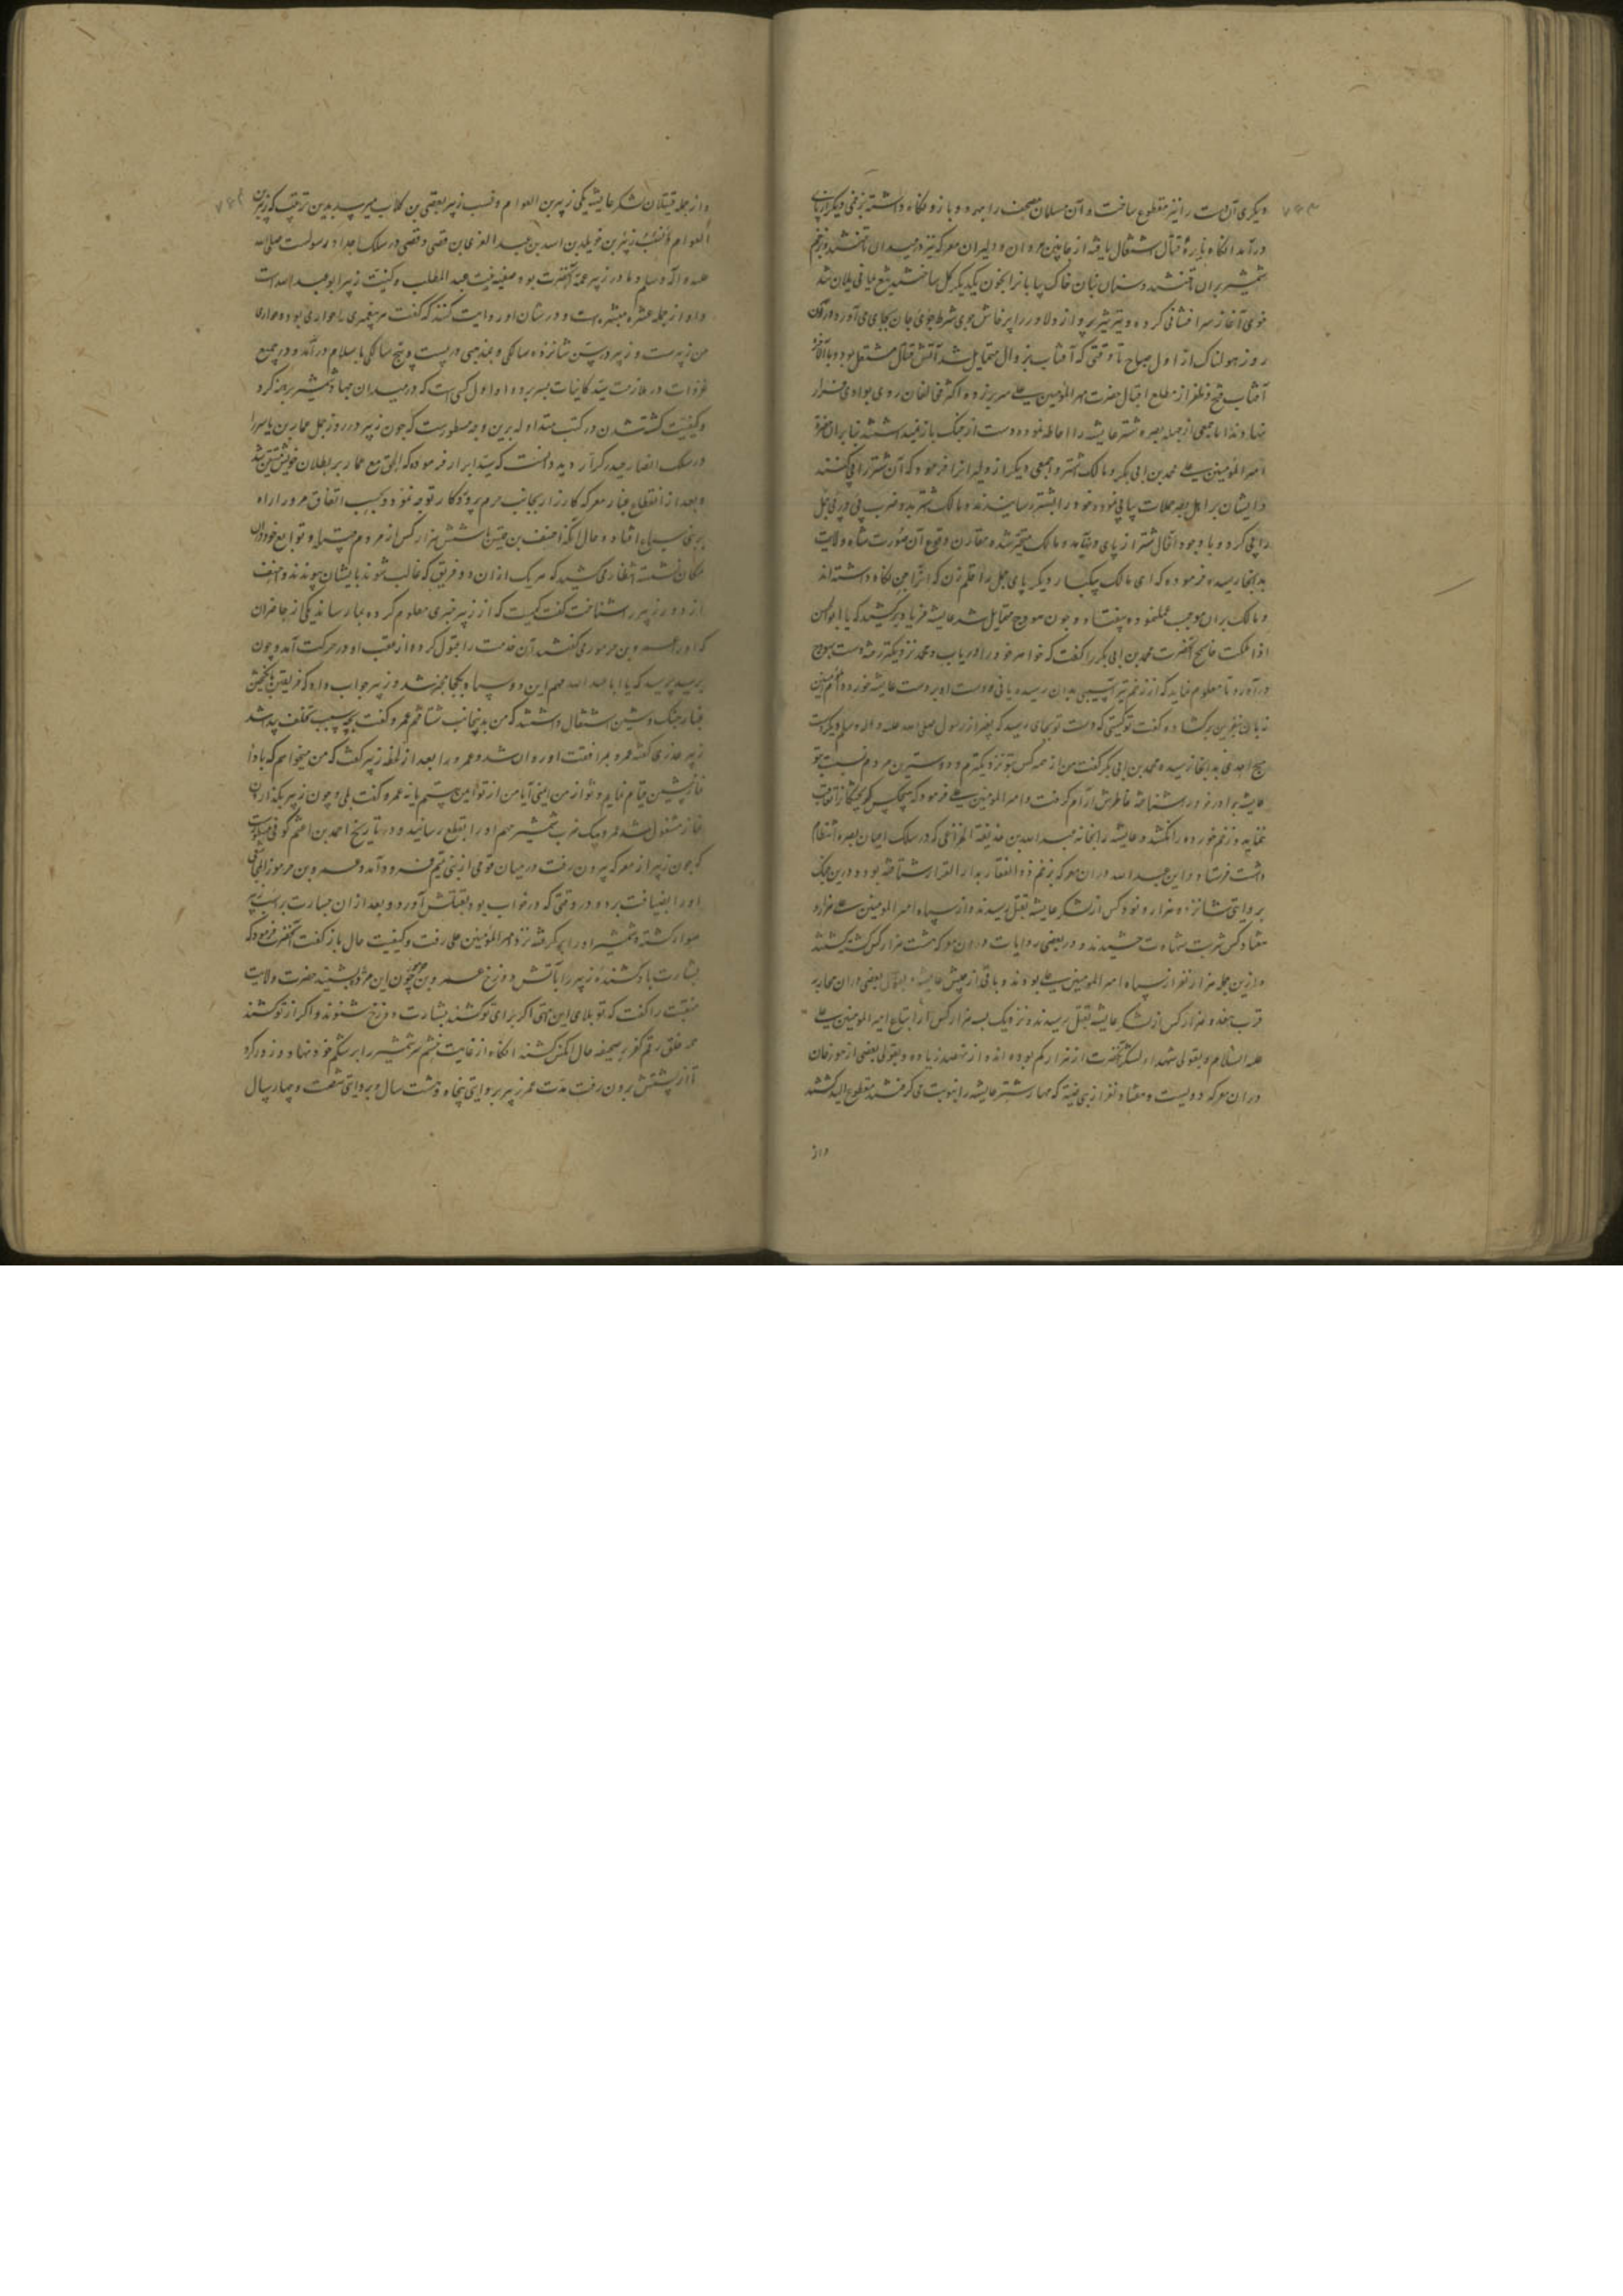 دیگری آن دست را نیز مقطوع ساخت و آن مسلمان مصحف را بهر دو بازو نگاه داشته بزخمی دیگر از پای
درآمد آنگاه نایرهٔ قتال اشتعال یافته از جانبین مردان و دلیران معرکه نیز در میدان تاختند و بزخم
شمشیر بران و سنان خاک بیابانرا بخون یکدیگر گل ساختند تیغ یلان شد
خوی آغاز سرافشانی کرده و تیر تیز پرواز دلاور را پرخاش جوی شرط جوی جان بجای می‌آورد و در آن
روز هولناک از اول صباح تا وقتی که آفتاب بزوال متمایل شد آتش قتال مشتعل بود و بالآخره
آفتاب فتح و ظفر از مطلع اقبال حضرت امیر المؤمنین علی سر برزده اکثر مخالفان روی بوادی فرار
نهادند اما جمعی از جمله بصره شتر عایشه را احاطه نموده دست از جنگ باز نمیداشتند بنابران حضرة
امیر المؤمنین علی محمد بن ابی بکر و مالک اشتر و جمعی دیگر از دلیرانرا فرمود که آن شتر را پی کنند
و ایشان بر اهل بصره حملات پیاپی نموده خود را بشتر رسانیدند و مالک اشتر بدو ضرب پی در پی جمل
را پی کرد و با وجود آنحال شتر از پای در نیامد و مالک متحیر شده مقارن وقوع آن صورت شاه ولایت
بدانجا رسیده فرمود که ای مالک یکبار دیگر پای جمل را قلم زن که آنرا جن نگاه داشته‌اند
و مالک بران موجب عمل نموده بیفتاد و چون هودج متمایل شد عایشه فریاد برکشید که یا ابا الحسن
اذا ملکت فاسجح آنحضرت محمد بن ابی بکر را گفت که خواهر خود را دریاب و محمد نزدیکتر رفته دست بهودج
درآورد تا معلوم نماید که از زخم تیر آسیبی بدان رسیده یا نی و دست او بر دست عایشه خورده ام المؤمنین
زبان بنفرین برکشاده گفت تو کیستی که دست تو بجای رسید که بغیر از رسول صلی الله علیه و آله وسلم دیگر دست
هیچ احدی بدانجا نرسیده محمد بن ابی بکر گفت من از همه کس بتو نزدیکترم و دوسترین مردم نسبت بتو
عایشه برادر خود را شناخته خاطرش آرام گرفت و امیر المؤمنین علی فرمود که هیچکس گریختگانرا تعاقب
ننماید و زخم خورده را نکشد و عایشه را بخانه عبد الله بن خلف الخزاعی که در سلک اعیان بصره انتظام
داشت فرستاد و این عبد الله دران معرکه بزخم ذو الفقار بدار القرار شتافته بود و درین جنگ
بروایتی شانزده هزار و نود کس از لشکر عایشه بقتل رسیدند و از سپاه امیر المؤمنین علی هزار و
هفتاد کس شربت شهادت چشیدند و در بعضی روایات در آن معرکه هشت هزار کس کشته گشتند
و ازین جمله هزار نفر از سپاه امیر المؤمنین علی بودند و باقی از جیش عایشه و بقول بعضی دران محاربه
قرب هفده هزار کس از لشکر عایشه بقتل رسیدند و نزدیک بسه هزار کس از اتباع امیر المؤمنین علی
علیه السلام و بقولی شهداء لشکر آنحضرت از هزار کم بوده‌اند و از نهصد زیاده و بقولی بعضی از مورخان
دران معرکه دویست و هفتاد نفر از بنی ضبه که مهار شتر عایشه را بنوبت می‌گرفتند مقطوع الید گشتند
و از
و از جمله قتیلان لشکر عایشه یکی زبیر بن العوام و نسب زبیر بقصی بن کلاب میرسد بدین ترتیب که زبیر بن
العوام بن خویلد بن اسد بن عبد العزی بن قصی و قصی در سلک اجداد رسولست صلی الله
علیه و آله وسلم و مادر زبیر عمهٔ آنحضرت بوده صفیه بنت عبد المطلب و کنیت زبیر ابو عبد الله است
و او از جمله عشره مبشره است و در شان او روایت کنند که گفت هر پیغمبری را حواری بوده و حواری
من زبیرست و زبیر در سن شانزده سالگی و بمذهبی در بیست و پنج سالگی باسلام درآمد و در جمیع
غزوات در ملازمت سید کاینات بسر برده و او اول کسی است که در میدان جهاد شمشیر برهنه کرد
و کیفیت کشته شدن در کتب متداوله برین وجه مسطورست که چون زبیر در روز جمل عمار بن یاسر را
در سلک انصار حیدر کرار دید دانست که سید ابرار فرموده که الحق مع عمار بر بطلان خویش متیقن شد
و بعد از انقطاع غبار معرکه کارزار بجانب حرم پروردگار توجه نمود و بحسب اتفاق مرور او را راه
بوادی سباع افتاد و حال آنکه احنف بن قیس باشش هزار کس از مردم و توابع خود دران
مکان نشسته انتظار میکشید که هر یک ازان دو فریق که غالب شوند بایشان پیوندند و احنف
از دور زبیر را شناخت گفت کیست که از زبیر خبری معلوم کرده بما رساند یکی از حاضران
که او را عمرو بن جرموز میگفتند آن خدمت را قبول کرده از عقب او در حرکت آمد و چون
برسید پرسید که یا ابا عبد الله مهم این دو سپاه بکجا منجر شد و زبیر جواب داد که فریقین بانگیختن
غبار جنگ و شین اشتغال داشتند که من بدینجانب شتافتم عمرو گفت بچه سبب تخلف پیدا شد
زبیر عذری گفته عمرو بمرافقت او روان شد و عمرو را بعد از لحظه زبیر گفت که من میخواهم که بادا
نماز پیشین قیام نمایم و تو از من ایمنی آیا من از تو ایمن هستم یا نه عمرو گفت بلی و چون زبیر بگذاردن
نماز مشغول شد عمرو بیک ضرب شمشیر مهم او را بقطع رسانید و در تاریخ احمد بن اعثم کوفی مسطورست
که چون زبیر از معرکه بیرون رفت در میان قومی از بنی تمیم فرود آمد و عمرو بن جرموز المجاشعی
او را بضیافت برده در وقتی که در خواب بود بقتلش آورد و بعد ازان جسارت بر اسب زبیر
سوار گشته و شمشیر او را برگرفته نزد امیر المؤمنین علی رفت و کیفیت حال باز گفت آنحضرت فرمود که
بشارت باد کشندهٔ زبیر را بآتش دوزخ عمرو بن جرموز چون این مژده بشنید حضرت ولایت
منقبت را گفت که تو بلای این امتی اگر برای تو کشند بشارت دوزخ شنوند و اگر از تو کشند
همه خلق رقم کفر بر صحیفه حال آنکس کشند آنگاه از غایت خشم سر شمشیر را بر شکم خود نهاد و زور کرد
تا از پشتش بیرون رفت مدت عمر زبیر بروایتی پنجاه و هشت سال و بروایتی شصت و چهار سال